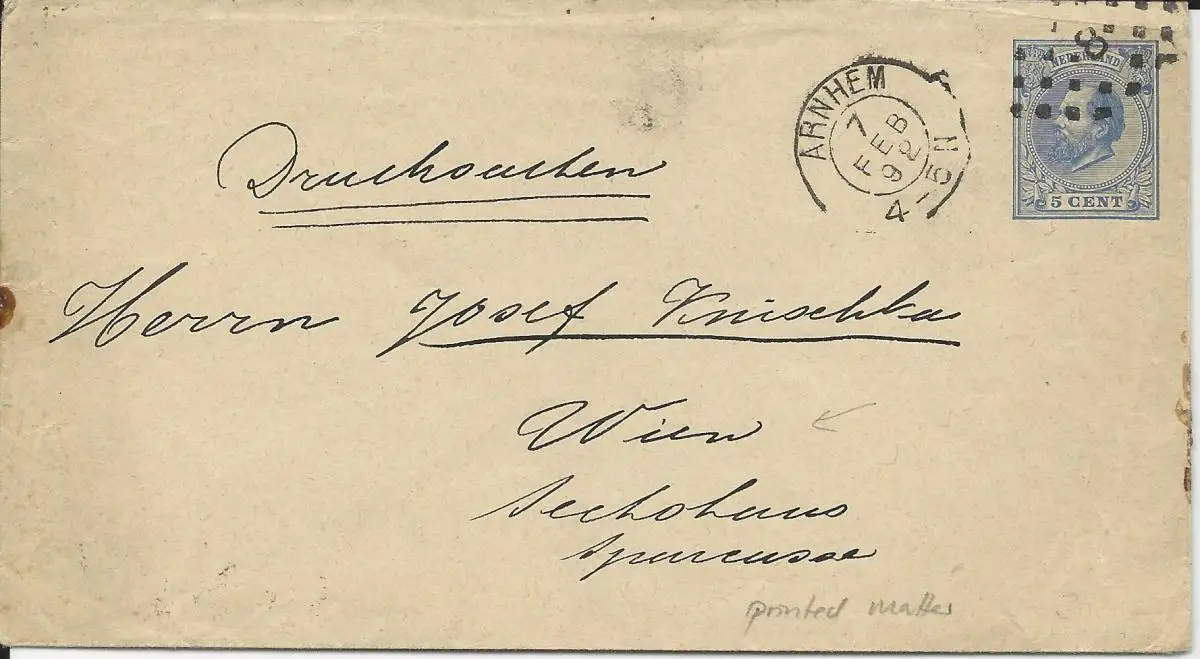 NEDERLAND
8
5 CENT
ARNHEM
7
FEB
92
4-5N
Drucksachen
Herrn Josef Knischka
Wien
Sechshaus
Sparcasse
printed matter